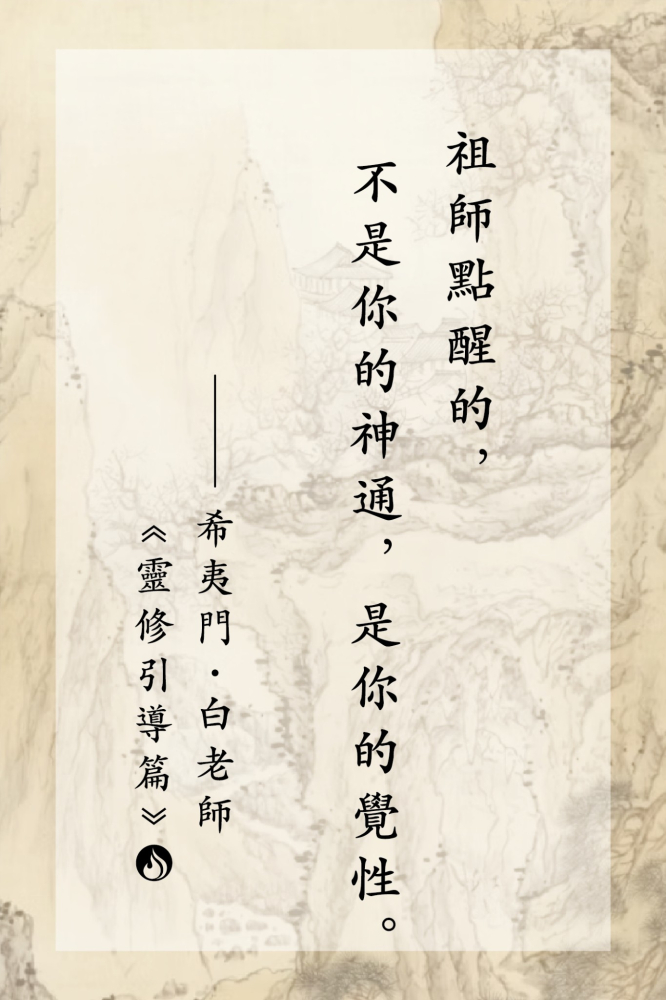 祖師點醒的，
不是你的神通，是你的覺性。
——希夷門·白老師
《靈修引導篇》